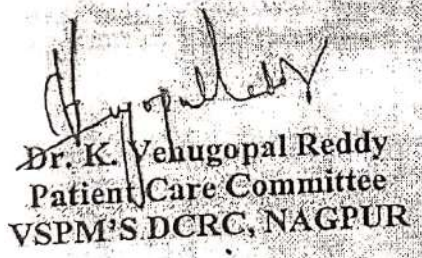 Dr. K. Venugopal Reddy
Patient Care Committee
VSPM'S DCRC, NAGPUR